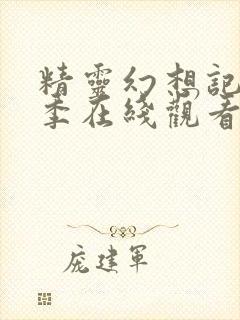 精靈幻想記
季在綫觀看
庞建軍